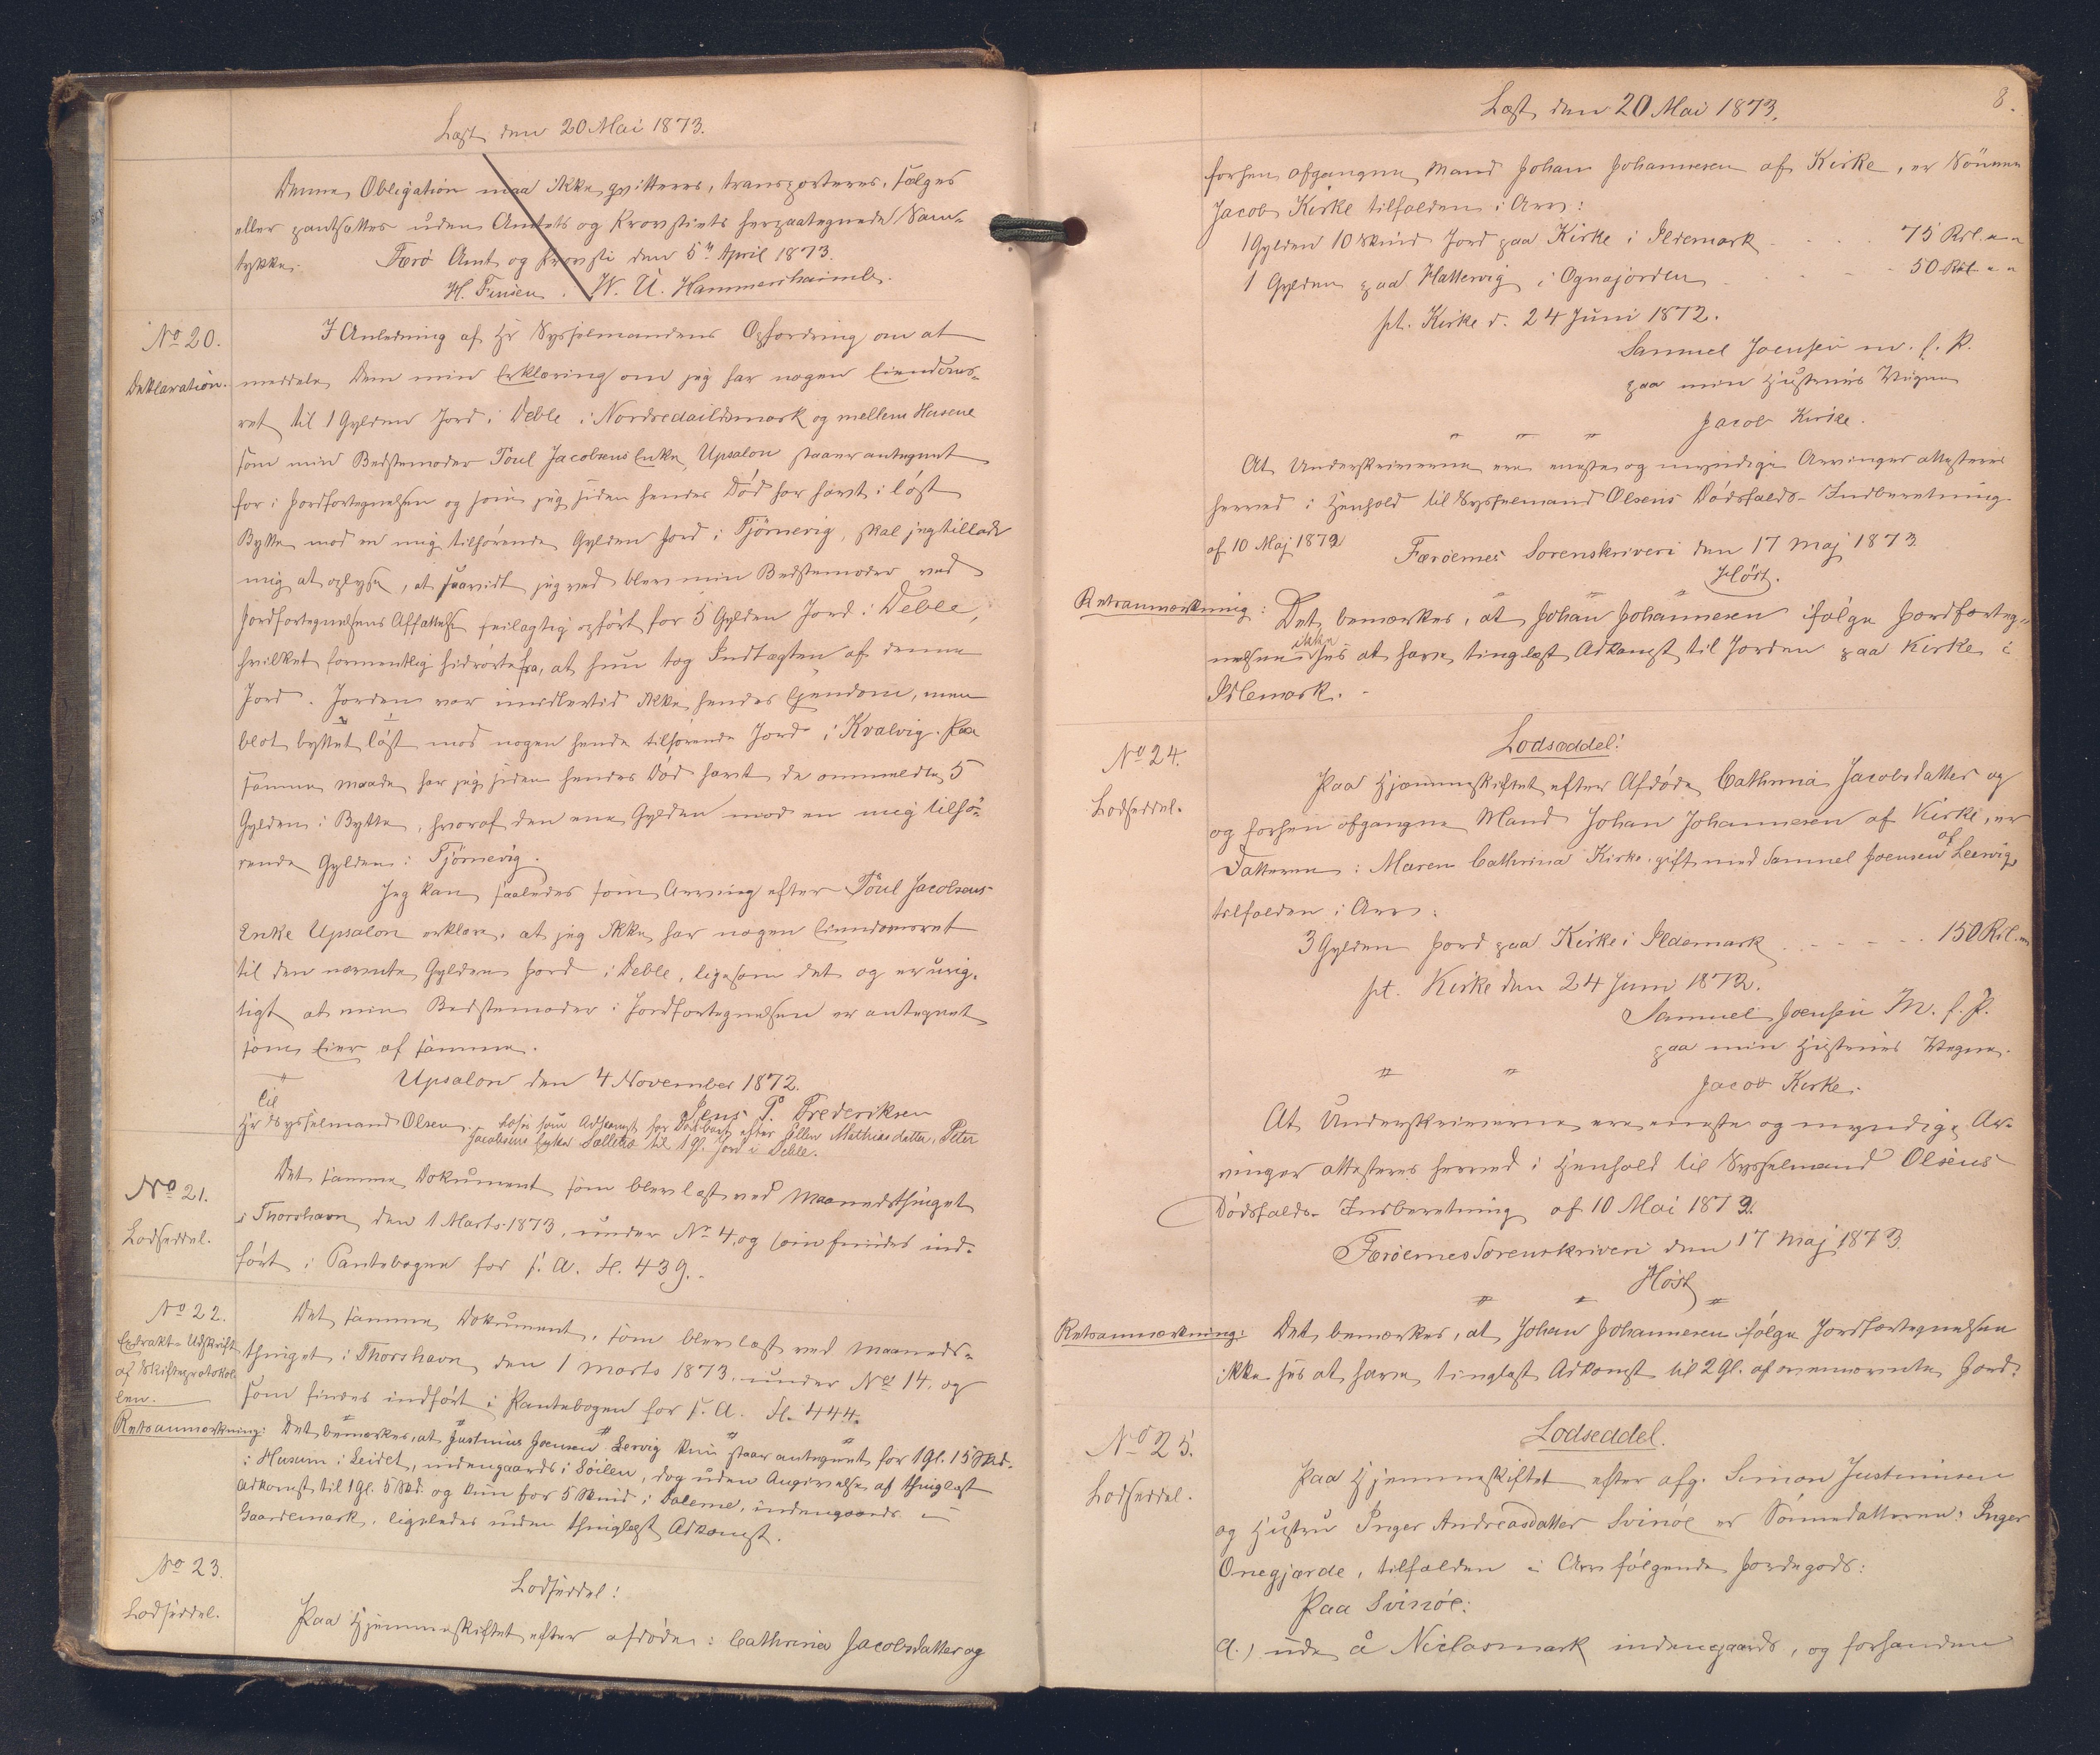 Læst den 20 Mai 1873.
Denne Obligation maa ikke qvitteres, transporteres, sælges
eller pantsættes uden Amtets og Provstiets herpaategnede Sam-
tykke. Færø Amt og Provsti den 5te April 1873.
H. Finsen. W. U. Hammershaimb.
No 20.
Deklaration.
I Anledning af Hr Sysselmandens Opfordring om at
meddele Dem min Erklæring om jeg har nogen Eiendoms-
ret til 1 Gylden Jord i Deble i Nordredaildsmark og mellem Husene
som min Bedstemoder Poul Jacobsens Enke Upsalon staaer antegnet
for i Jordfortegnelsen og som jeg siden hendes Død har havt i løst
Bytte mod en mig tilhørende Gylden Jord i Tjørnevig, skal jeg tillade
mig at oplyse, at saavidt jeg ved blev min Bedstemoder ved
Jordfortegnelsens Affattelse feilagtig opført for 5 Gylden Jord i Deble,
hvilket formentlig hidrørte fra, at hun tog Indtægten af denne
Jord. Jorden var imidlertid ikke hendes Ejendom, men
blot byttet løst mod nogen hende tilhørende Jord i Kvalvig. Paa
samme maade har jeg siden hendes Død havt de ommeldte 5
Gylden i Bytte, hvoraf den ene Gylden mod en mig tilhø-
rende Gylden i Tjørnevig.
Jeg kan saaledes som Arving efter Poul Jacobsens
Enke Upsalon erklære, at jeg ikke har nogen Eiendomsret
til den nævnte Gylden Jord i Deble, ligesom det og er urig-
tigt at min Bedstemoder i Jordfortegnelsen er antegnet
som Eier af samme.
Upsalon den 4 November 1872.
Jens P. Frederiksen
Til
Hr Sysselmand Olsen. Læses som Adkomst for Dødsboet efter Ellen Mathiasdatter, Peter
Jacobsens Enke Sælletræ til 1 Gl. Jord i Deble.
No 21.
Lodseddel.
Det samme Dokument som blev læst ved Maanedsthinget
i Thorshavn den 1 Marts 1873, under No 4, og som findes ind-
ført i Pantebogen for s. A. S. 439.
No 22.
Extrakt-Udskrift
af Skifteprotokol-
len.
Det samme Dokument, som blev læst ved Maaneds-
thinget i Thorshavn den 1 Marts 1873 under No 14, og
som findes indført i Pantebogen for s. A. S. 444.
Retsanmærkning: Det bemærkes, at Justinus Joensen Lervig kun staar antegnet for 1 Gl. 15 Skd.
i Husum i Leidet, indengaards i Søilen, dog uden Angivelse af thinglæst
Adkomst til 1 Gl. 5 Skd. og kun for 5 Skind i Dalerne, indengaards i
Gaardemark, ligeledes uden thinglæst Adkomst.
No 23.
Lodseddel.
Lodseddel!
Paa Hjemmeskiftet efter afdøde: Cathrina Jacobsdatter og
Læst den 20 Mai 1873.
8.
forhen afgangne Mand Johan Johannesen af Kirke, er Sønnen
Jacob Kirke tilfalden i Arv:
1 Gylden 10 Skind Jord paa Kirke i Ildemark . . . . 75 Rdl. " "
1 Gylden paa Hattervig i Ognajorden . . . . 50 Rdl. " "
pt. Kirke d. 24 Juni 1872.
Samuel Joensen m. f. P.
paa min Hustrues Vegne
Jacob Kirke.
" " "
At Underskriverne ere eneste og myndige Arvinger attesteres
herved i Henhold til Sysselmand Olsens Dødsfalds-Indberetning
af 10 Maj 1872
Færøernes Sorenskriveri den 17 Maj 1873
Høst.
Retsanmærkning: Det bemærkes, at Johan Johannesen ifølge Jordforteg-
nelsen ikke ses at have tinglæst Adkomst til Jorden paa Kirke i
Ildemark.
No 24.
Lodseddel.
Lodseddel!
Paa Hjemmeskiftet efter Afdøde Cathrina Jacobsdatter og
og forhen afgangne Mand Johan Johannesen af Kirke, er
Datteren: Maren Cathrina Kirke, gift med Samuel Joensen af Leervig,
tilfalden i Arv:
3 Gylden Jord paa Kirke i Ildemark . . . . . 150 Rdl. " "
pt. Kirke den 24 Juni 1872.
Samuel Joensen M. f. P.
paa min Hustrues Vegne.
" "
Jacob Kirke.
At Underskriverne ere eneste og myndige Ar-
vinger attesteres herved i Henhold til Sysselmand Olsens
Dødsfalds-Indberetning af 10 Mai 1872.
Færøernes Sorenskriveri den 17 Maj 1873.
Høst
" " "
Retsanmærkning: Det bemærkes, at Johan Johannesen ifølge Jordfortegnelsen
ikke ses at have tinglæst Adkomst til 2 Gl. af ovennævnte Jord.
No 25.
Lodseddel.
Lodseddel.
Paa Hjemmeskiftet efter afg. Simon Justinusen
og Hustru Inger Andreasdatter Svinøe er Sønnedatteren: Inger
Onegjærde, tilfalden i Arv følgende Jordegods:
Paa Svinøe:
a.) ude å Niclasmark indengaards, og forhanden